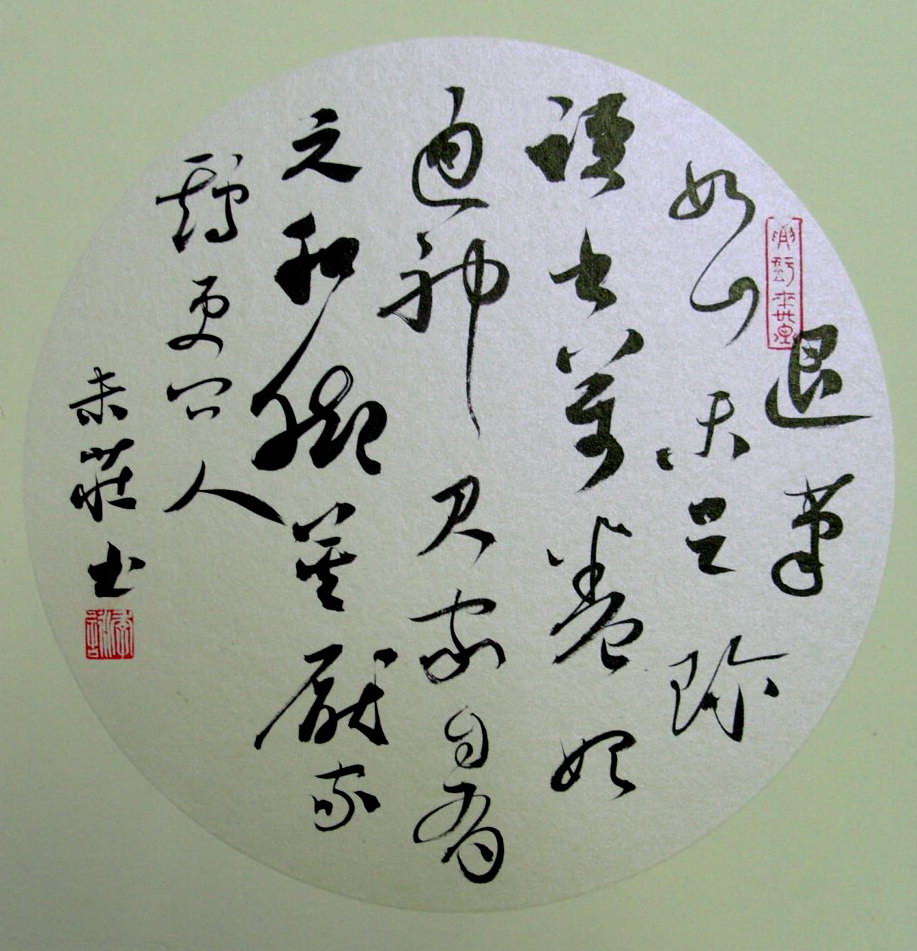 退筆
如山未足珍
讀書萬卷始
通神君家自有
元和腳莫厭家
鷄更問人
未莊書